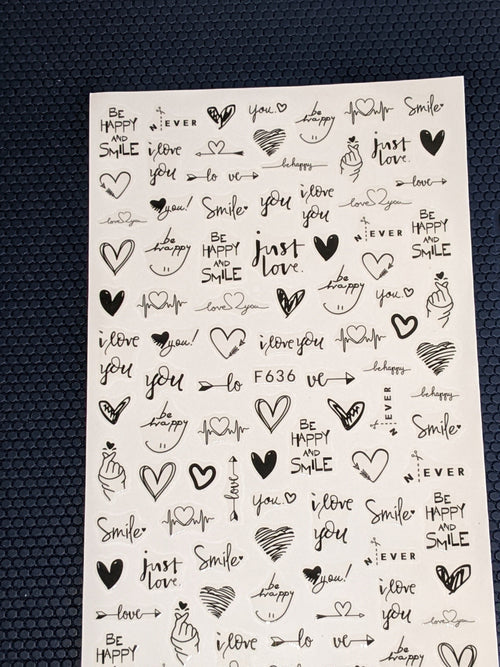 BE
HAPPY
AND
SMILE
N EVER
you.
be
happy
Smile
i love
you
lo ve
be happy
just
love.
love
love you
you!
Smile
you
i love
you
love you
N EVER
BE
HAPPY
AND
SMILE
be
happy
BE
HAPPY
AND
SMILE
just
love.
love you
be
happy
you.
i love
you
you!
i love you
you
lo F636 ve
be happy
be happy
N EVER
be
happy
BE
HAPPY
AND
SMILE
Smile
love
N EVER
you.
i love
you
Smile
BE
HAPPY
AND
SMILE
Smile
just
love.
Smile
N EVER
be
happy
you!
i love
you
love
love you
BE
HAPPY
i love
lo ve
be
happy